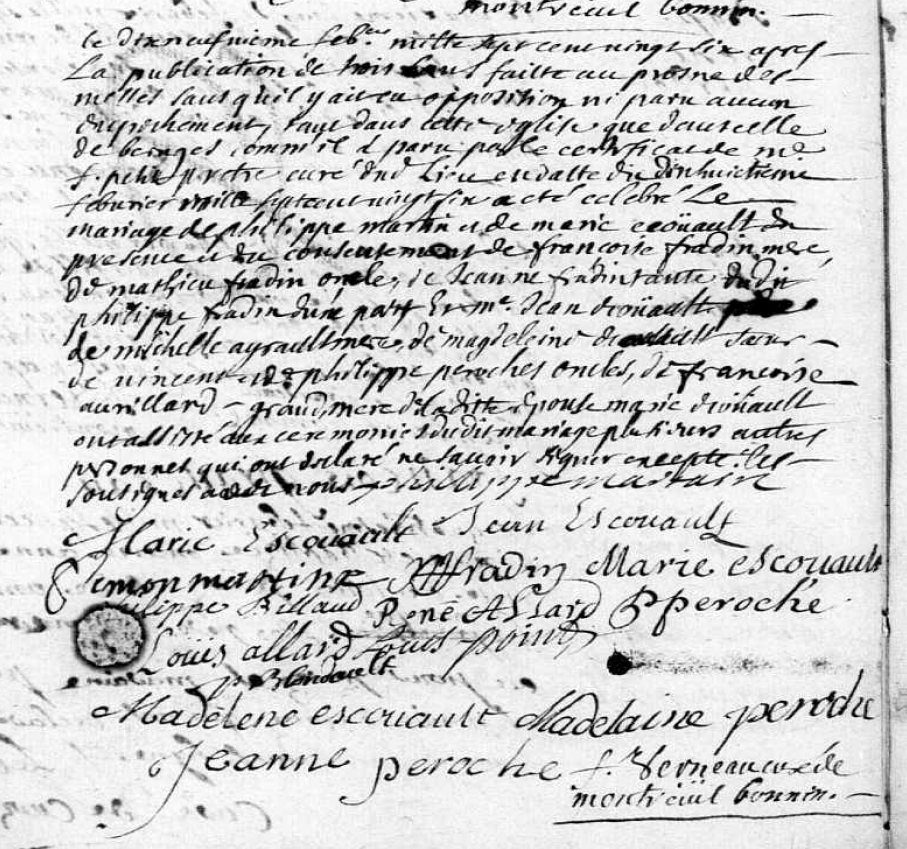 montreuil bonnin.
le dixneufvieme feb.er mille sept cent vingt six apres
La publication de trois bans faitte au prosne des
messes sans quil y ait eu opposition ni paru aucun
empechement, tant dans cette eglise que dans celle
de beruges comm il a paru par le certificat de mre
f. petit pretre curé dud Lieu en datte du dixhuictieme
februier mille sept cent vingt six a eté celebré Le
mariage de philippe martin et de marie ecoüault en
presence et du consentement de francoise fradin mere,
de mathieu fradin oncle, de Jeanne fradin tante dudit
philippe fradin d'une part Et me. Jean ecoüault
de michelle ayrault mere, de magdeleine soeur
de vincent et de philippe peroches oncles, de francoise
aurillard grand mere de laditte epouse marie ecoüault
ont assisté aux ceremonies dudit mariage plusieurs autres
personnes qui ont declaré ne savoir signer excepté les
sousignes avec nous philippe martin
Marie Escouault Jean Escouault
Simon martin fradin Marie escouault
philippe Billaud René Allard P peroche
Louis allard Louis point
Blondault
Madelene escouault Madelaine peroche
Jeanne peroche f. Verneau curé de
montreuil bonnin.